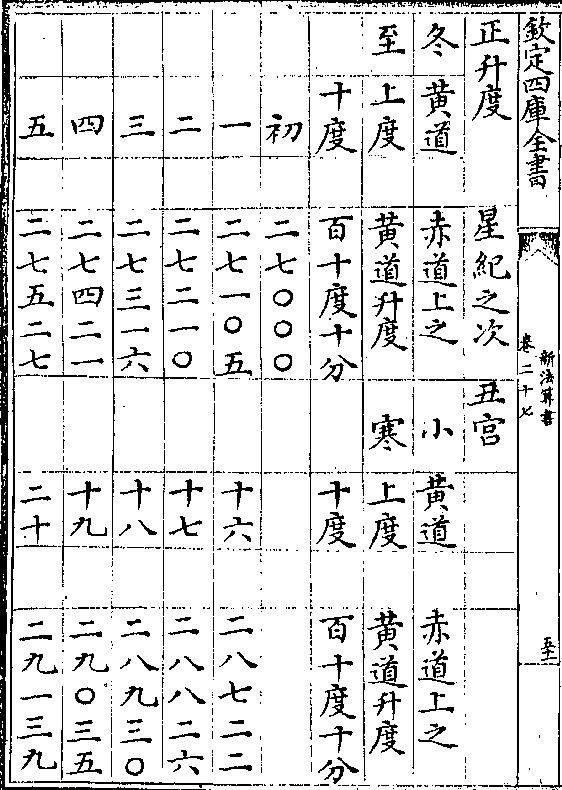 欽定四庫全書
新法算書
卷二十七
正升度 星紀之次 丑宮
冬 黃道 赤道上之 小 黃道 赤道上之
至 上度 黃道升度 寒 上度 黃道升度
十度 百十度十分 十度 百十度十分
初 二七〇〇〇
一 二七一〇五 十六 二八七二二
二 二七二一〇 十七 二八八二六
三 二七三一六 十八 二八九三〇
四 二七四二一 十九 二九〇三五
五 二七五二七 二十 二九一三九